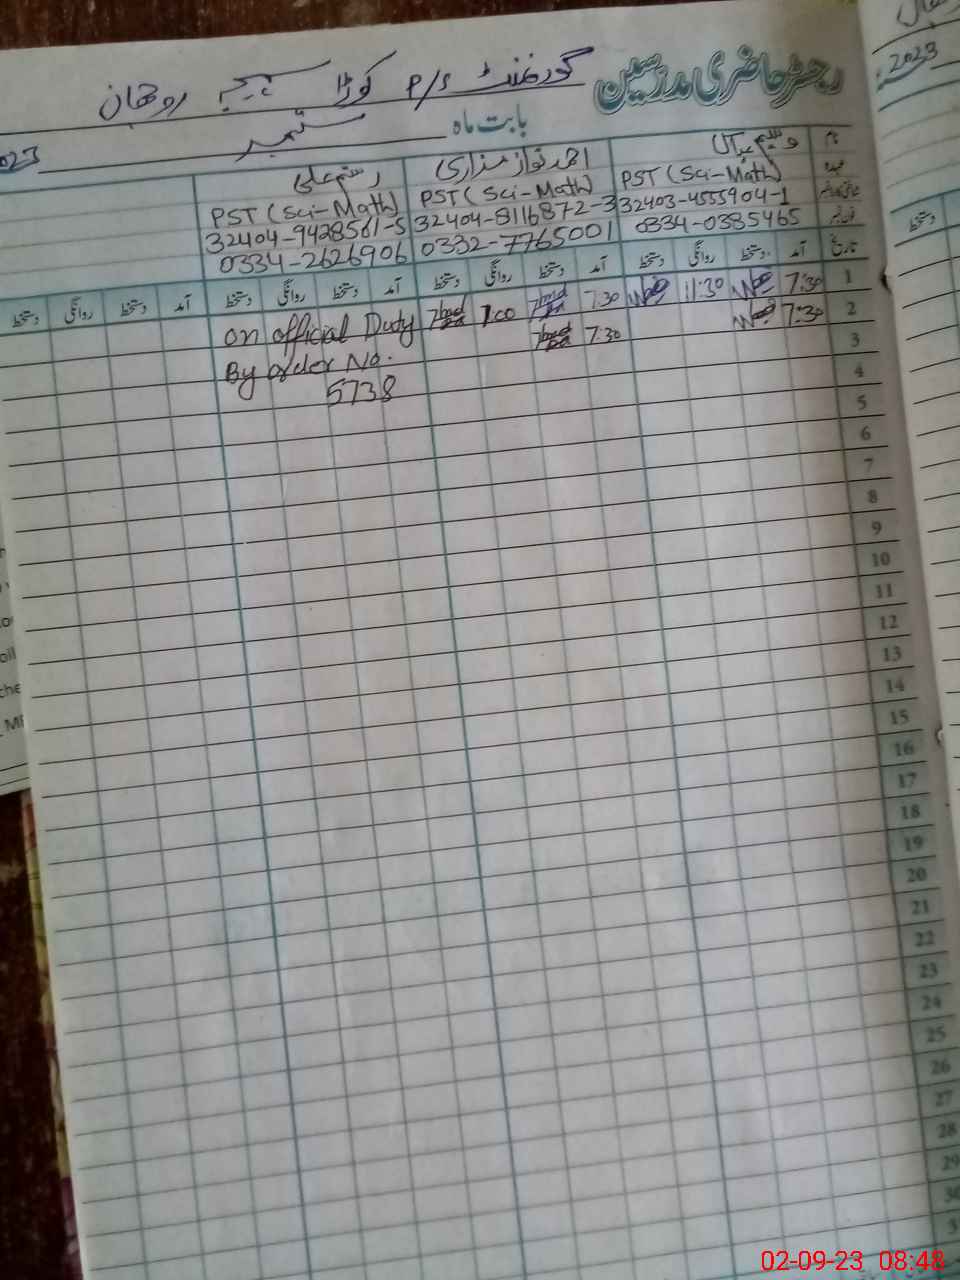 رجسٹر حاضری مدرسین
گورنمنٹ P/S کوڑا روجھان
بابت ماہ ستمبر
2023
نام
وسیم
احمد نواز مزاری
رستم علی
عہدہ
PST (Sci-Math)
PST (Sci-Math)
PST (Sci-Math)
32403-4555904-1
32404-8116872-3
32404-9428561-5
0334-0385465
0332-7765001
0334-2626906
تاریخ آمد دستخط روانگی دستخط آمد دستخط روانگی دستخط آمد دستخط روانگی دستخط آمد دستخط روانگی دستخط
1 7:30 11:30 7:30 1:00 on official Duty
2 7:30 7:30 By order No.
3 5738
4
5
6
7
8
9
10
11
12
13
14
15
16
17
18
19
20
21
22
23
24
25
26
27
28
29
30
2023
دستخط
02-09-23 08:48